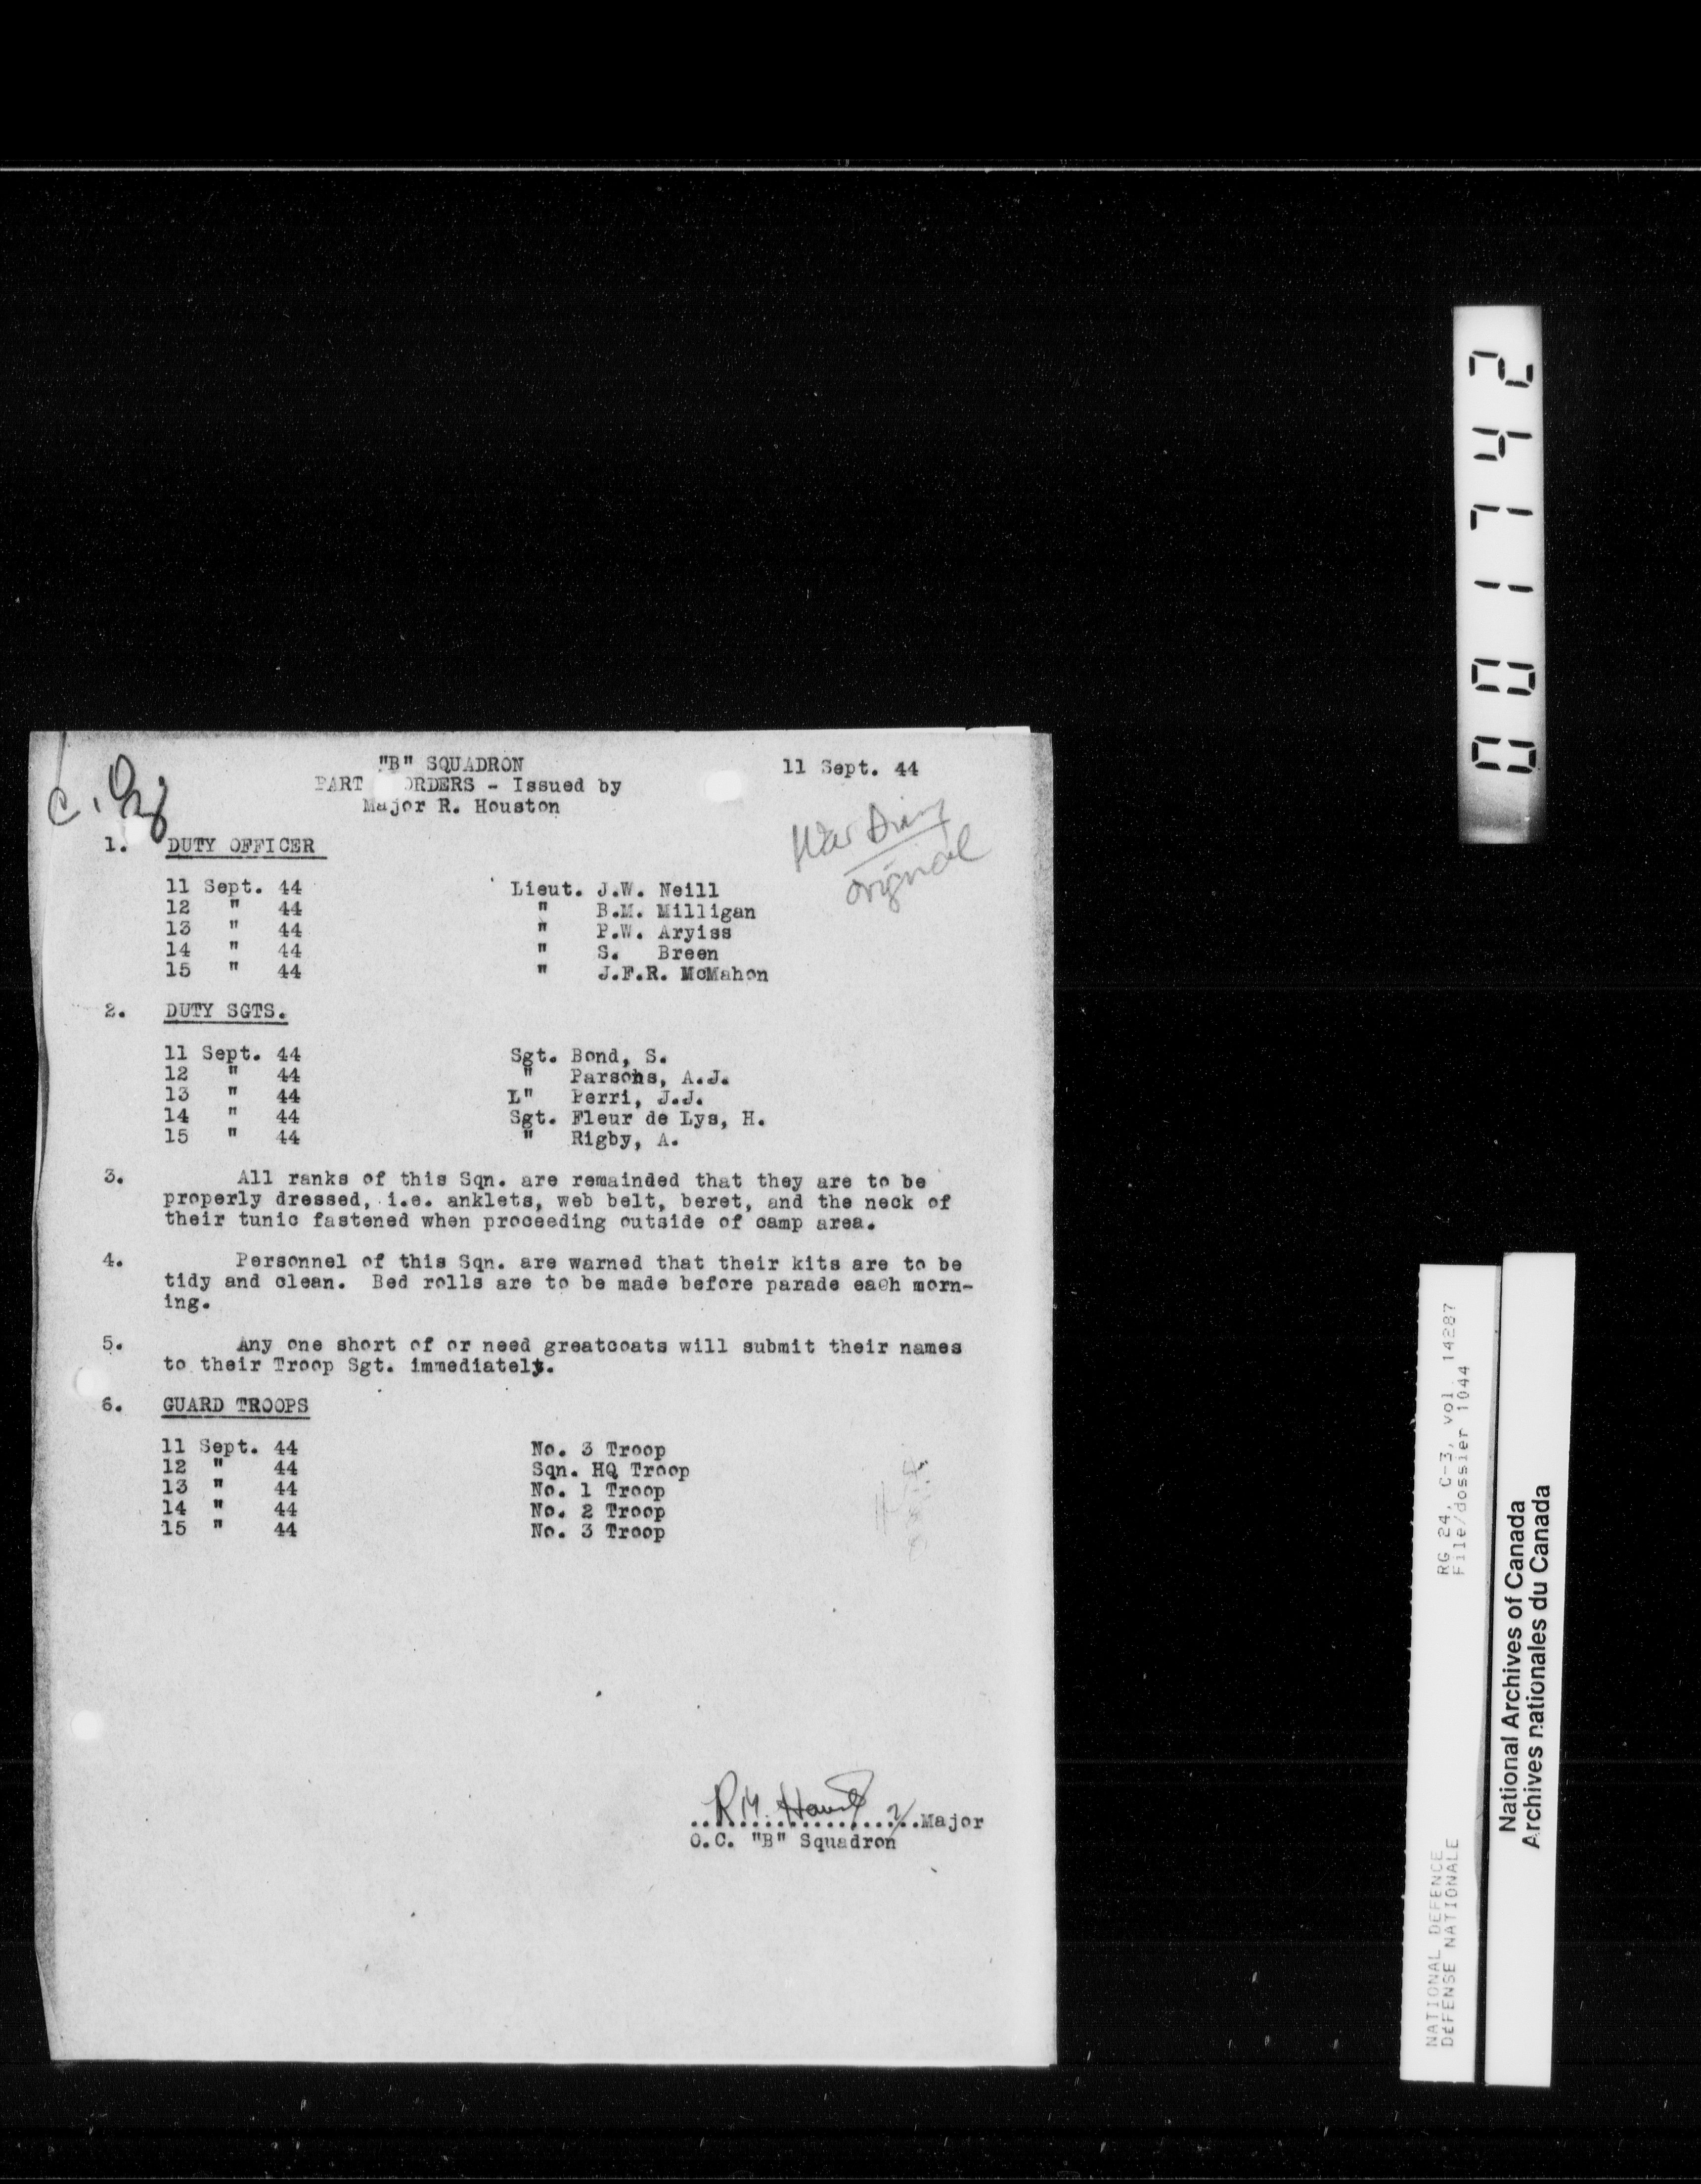 "B" SQUADRON
11 Sept. 44
PART ORDERS - Issued by
Major R. Houston
War Diary
original
1. DUTY OFFICER
11 Sept. 44 Lieut. J.W. Neill
12 " 44 " B.M. Milligan
13 " 44 " P.W. Aryiss
14 " 44 " S. Breen
15 " 44 " J.F.R. McMahon
2. DUTY SGTS.
11 Sept. 44 Sgt. Bond, S.
12 " 44 " Parsons, A.J.
13 " 44 L" Perri, J.J.
14 " 44 Sgt. Fleur de Lys, H.
15 " 44 " Rigby, A.
3. All ranks of this Sqn. are remainded that they are to be
properly dressed, i.e. anklets, web belt, beret, and the neck of
their tunic fastened when proceeding outside of camp area.
4. Personnel of this Sqn. are warned that their kits are to be
tidy and clean. Bed rolls are to be made before parade each morn-
ing.
5. Any one short of or need greatcoats will submit their names
to their Troop Sgt. immediately.
6. GUARD TROOPS
11 Sept. 44 No. 3 Troop
12 " 44 Sqn. HQ Troop
13 " 44 No. 1 Troop
14 " 44 No. 2 Troop
15 " 44 No. 3 Troop
....................Major
O.C. "B" Squadron
001742
NATIONAL DEFENCE RG 24, C-3, vol. 14287
DÉFENSE NATIONALE File/dossier 1044
National Archives of Canada
Archives nationales du Canada